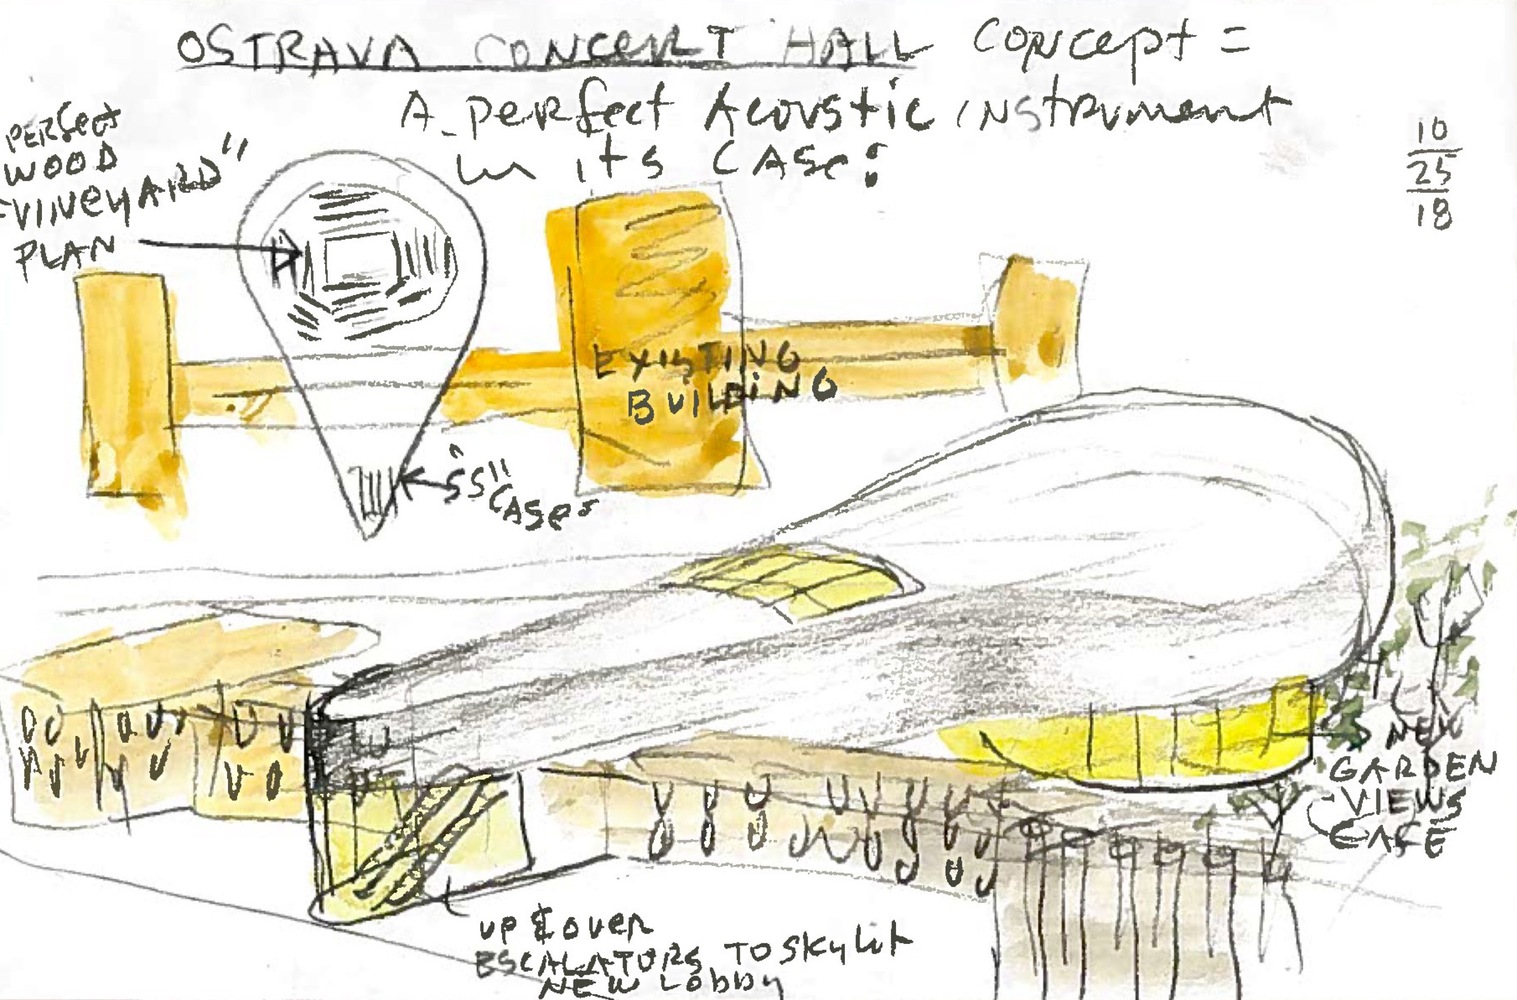 OSTRAVA CONCERT HALL Concept =
A perfect Acoustic instrument
in its CASE:
10
25
18
PERfect
WOOD
"VINEYARD"
PLAN
EXISTING
BUILDING
"SS"
CASE
NEW
GARDEN
VIEWS
CAFE
UP & OVER
ESCALATORS TO SKYLIT
NEW LOBBY